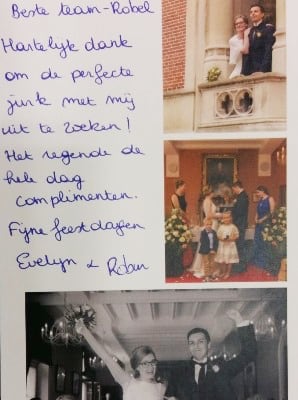 Beste team-Robel
Hartelijk dank
om de perfecte
jurk met mij
uit te zoeken!
Het regende de
hele dag
complimenten.
Fijne feestdagen
Evelyn & Robin